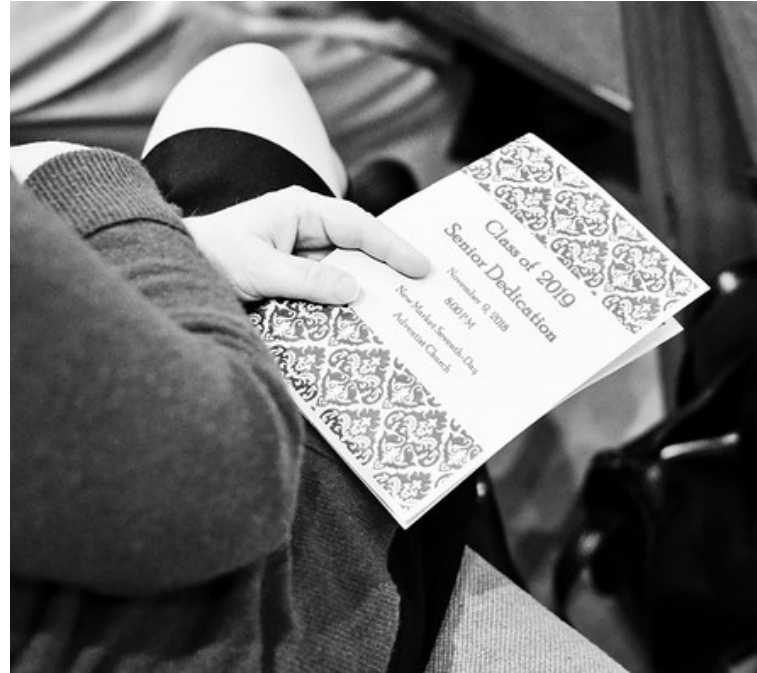 Class of 2019
Senior Dedication
November 9, 2018
8:00 P.M.
New Market Seventh-Day
Adventist Church